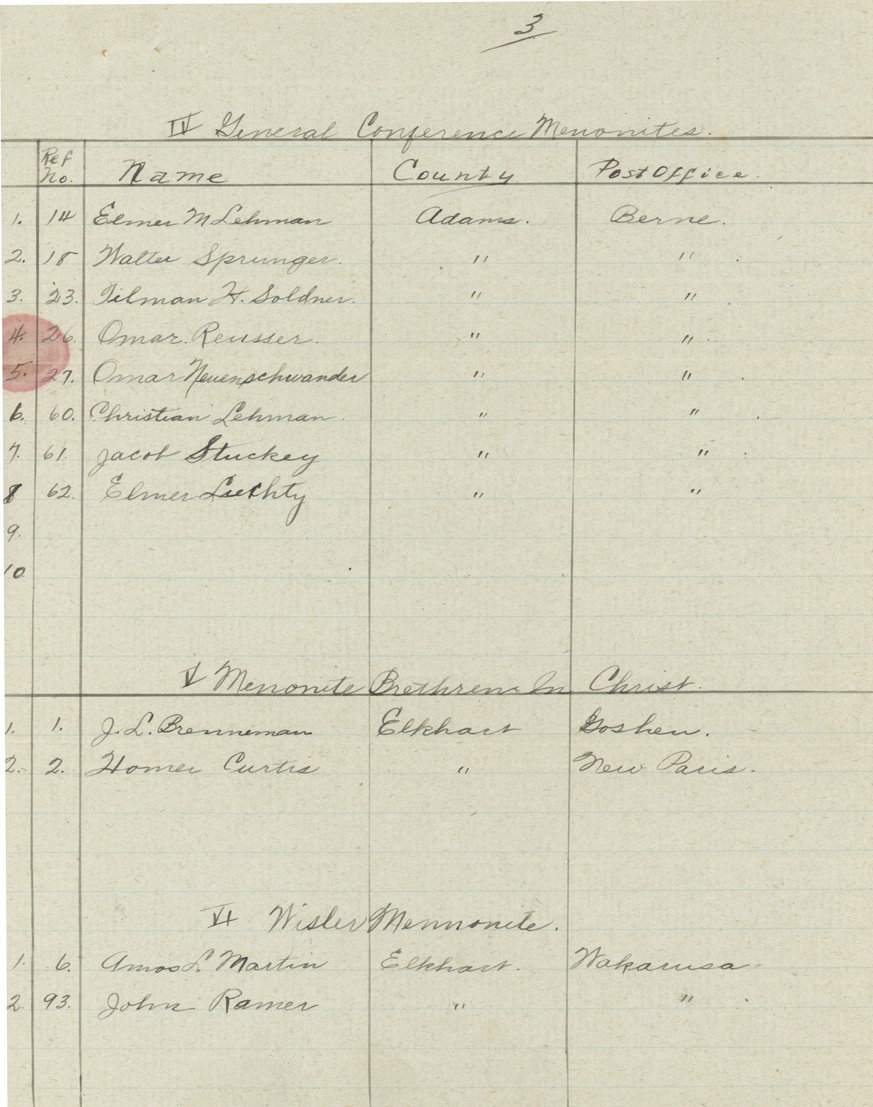 3
IV General Conference Menonites.
Ref No. Name County Post Office.
1. 14 Elmer M Lehman Adams. Berne.
2. 18 Walter Sprunger. " " .
3. 23. Tilman H. Soldner. " "
4. 26. Omar. Reusser. " " .
5. 27. Omar Neuenschwander " " .
6. 60. Christian Lehman. " " .
7. 61. Jacob Stuckey " " .
8 62. Elmer Liechty " "
9.
10.
V Menonite Brethren In Christ.
1. 1. J. L. Brenneman Elkhart Goshen.
2. 2. Homer Curtis " New Paris.
VI Wisler Mennonite.
1. 6. Amos L Martin Elkhart. Wakarusa
2 93. John Ramer " " .